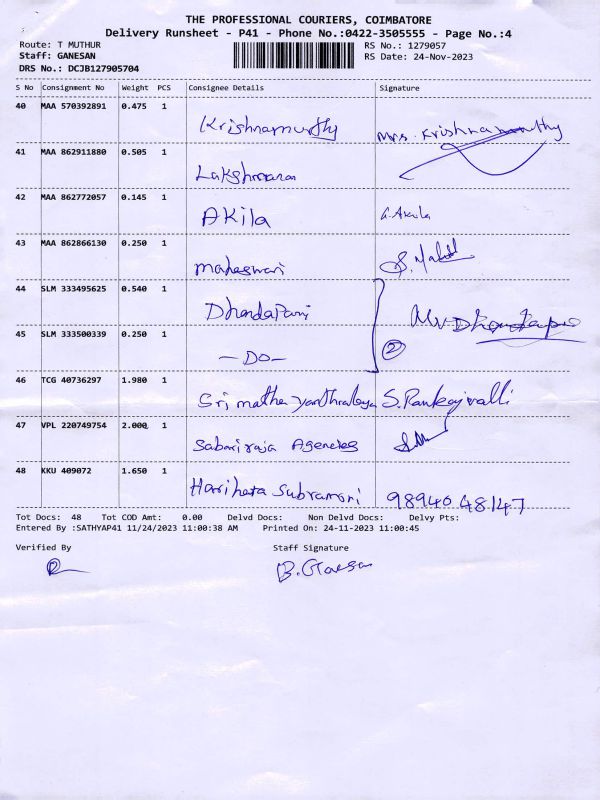 THE PROFESSIONAL COURIERS, COIMBATORE
Delivery Runsheet - P41 - Phone No.:0422-3505555 - Page No.:4
Route: T MUTHUR RS No.: 1279057
Staff: GANESAN RS Date: 24-Nov-2023
DRS No.: DCJB127905704
S No Consignment No Weight PCS Consignee Details Signature
40 MAA 570392891 0.475 1 Krishnamurthy Mrs. Krishnamurthy
41 MAA 862911880 0.505 1 Lakshmanan
42 MAA 862772057 0.145 1 Akila G. Akila
43 MAA 862866130 0.250 1 maheswari
44 SLM 333495625 0.540 1 Dhandapani
45 SLM 333500339 0.250 1 - DO - 2
46 TCG 40736297 1.980 1 Sri matha S. Pankajvalli
47 VPL 220749754 2.000 1 Sabariraja Agencies
48 KKU 409072 1.650 1 Harihara 98940 48147
Tot Docs: 48 Tot COD Amt: 0.00 Delvd Docs: Non Delvd Docs: Delvy Pts:
Entered By :SATHYAP41 11/24/2023 11:00:38 AM Printed On: 24-11-2023 11:00:45
Verified By Staff Signature